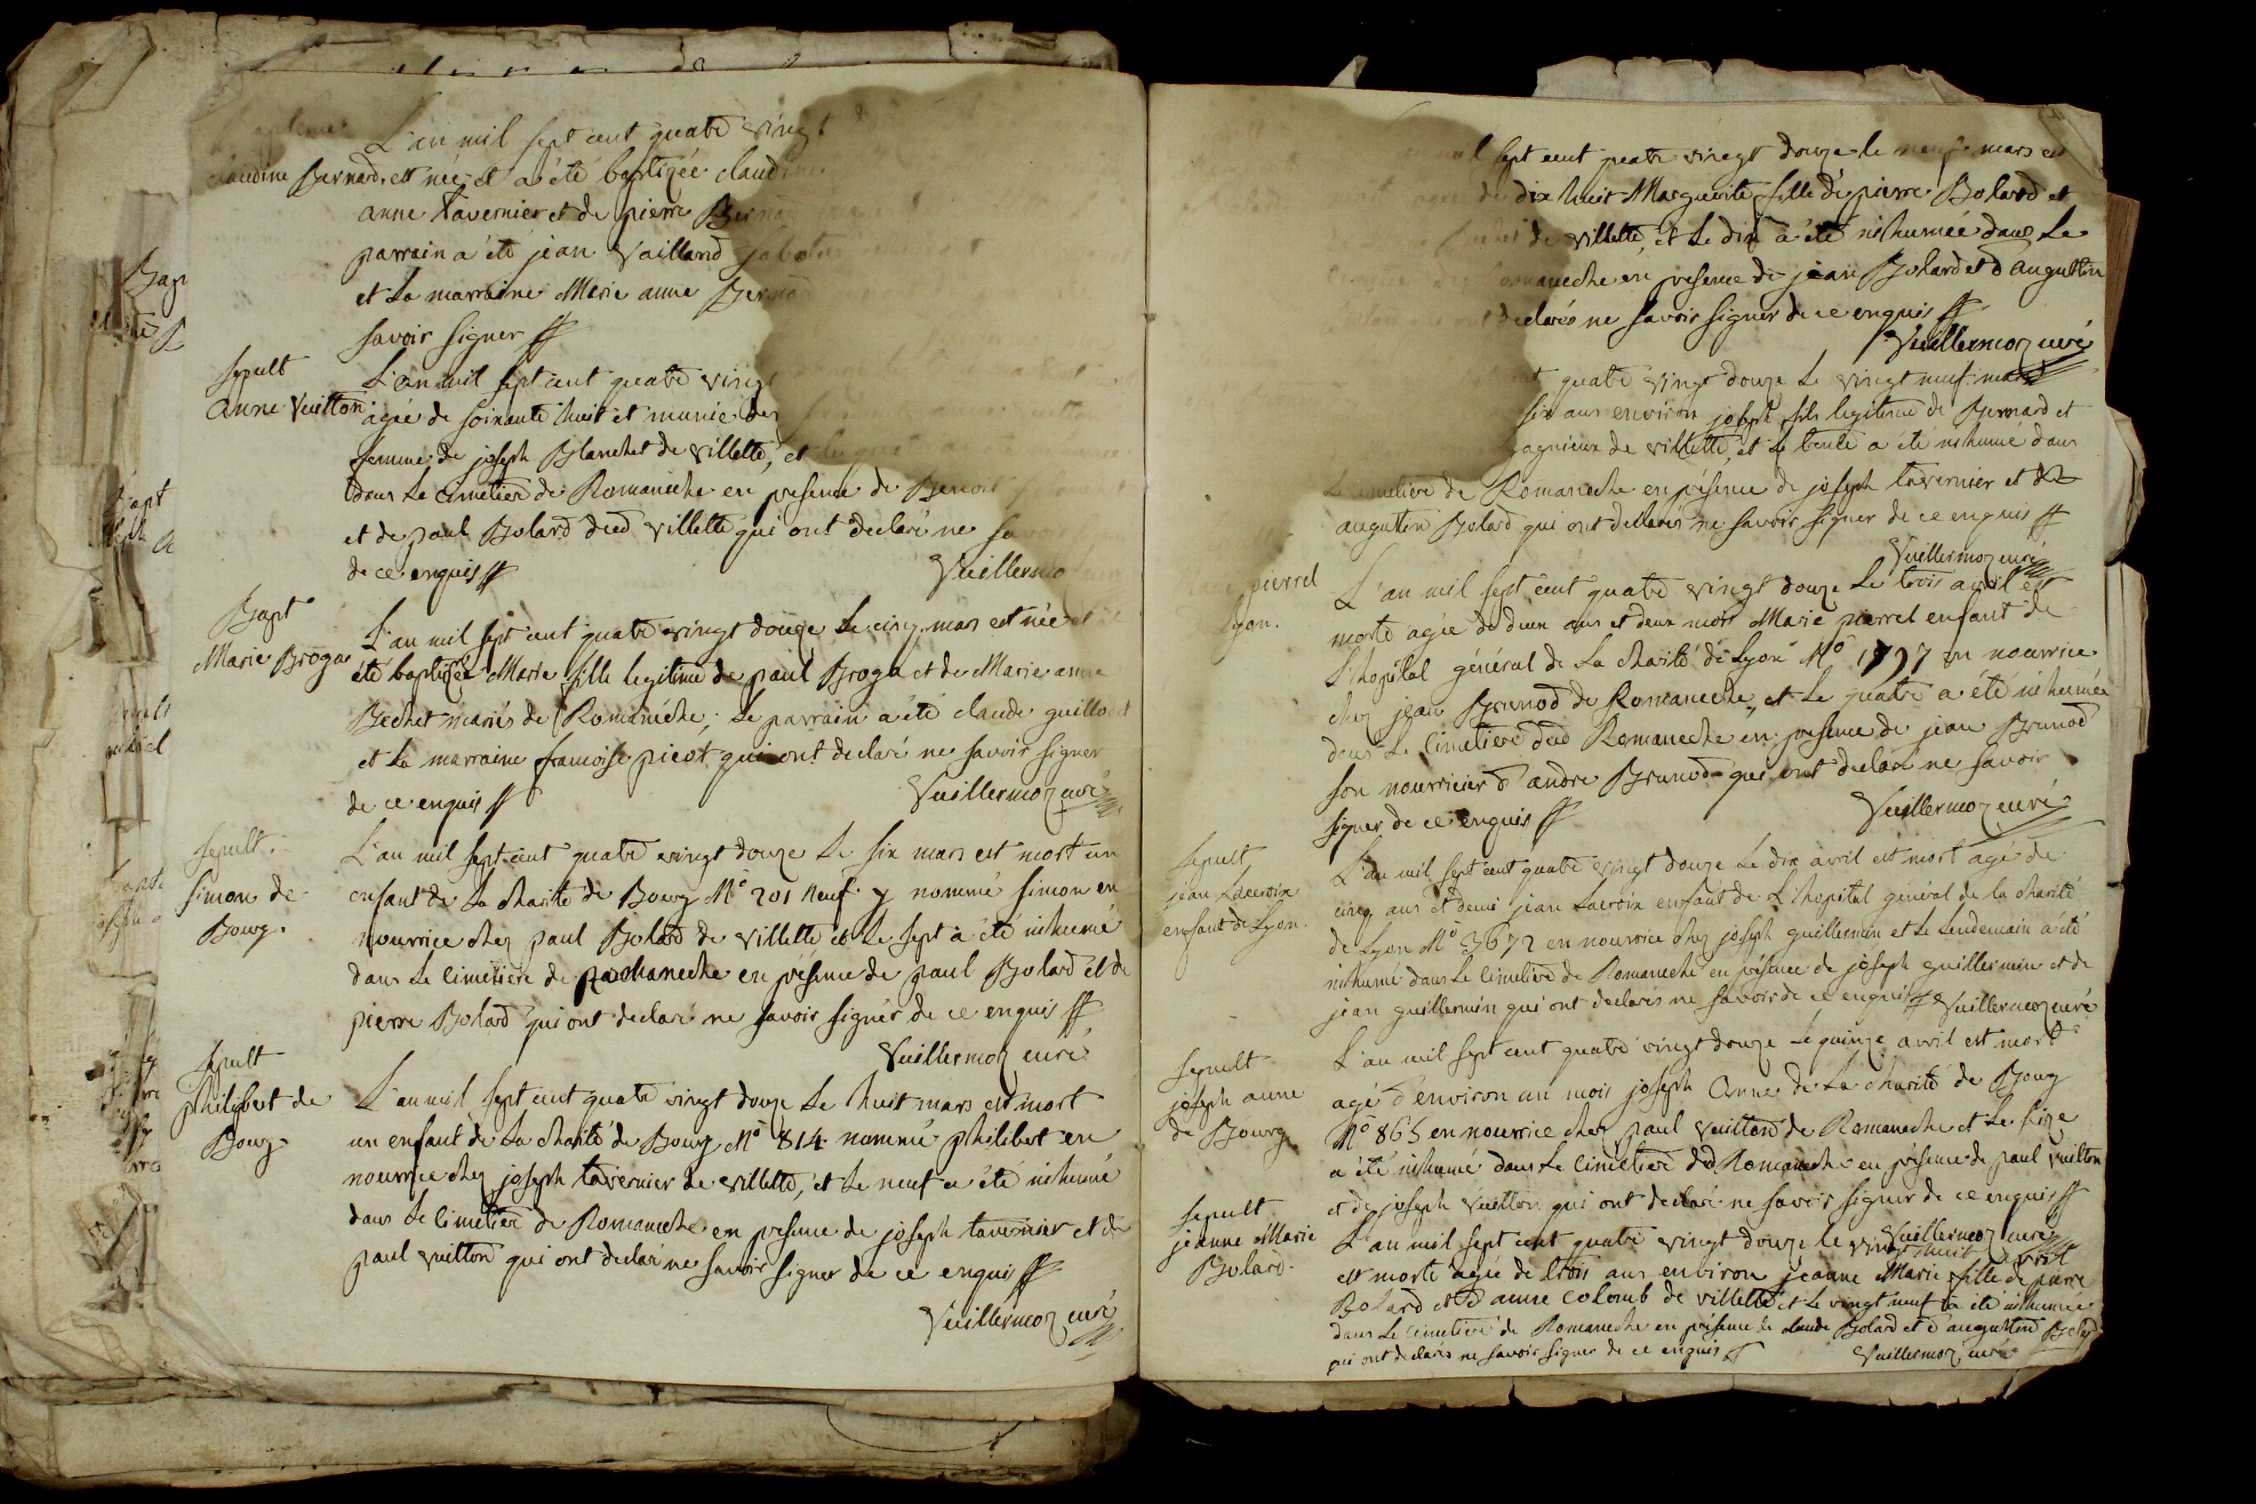 L'an mil sept cent quatre vingt
claudine Bernard
est née et a été baptizée claudine
anne tavernier et de pierre Bernard
parrain a été jean Vailland
et la marraine Marie anne Bernard
savoir signer
sepult
anne Vuitton
L'an mil sept cent quatre vingt
agée de soixante huit et munie des
femme de joseph Blanchet de villette, et
dans le cimetiere de Romaneche en presence de Benoit
et de paul Bolard dud villette qui ont declaré ne
de ce enquis
Vuillermo
Bapt
Marie Broga
L'an mil sept cent quatre vingt douze le cinq mars est née et
été baptizée Marie fille legitime de paul Broga et de Marie anne
Bechet mariés de Romanéche, le parrain a été claude guillo
et la marraine francoise picot qui ont declaré ne savoir signer
de ce enquis
Vuillermoz curé
sepult.
simon de
Bourg.
L'an mil sept cent quatre vingt douze le six mars est mort un
enfant de la charité de Bourg No 201 neuf y nommé simon en
nourrice chez paul Bolard de villette et le sept a été inhumé
dans le cimetiere de Romaneche en présence de paul Bolard et de
pierre Bolard qui ont declaré ne savoir signer de ce enquis
Vuillermoz curé
sepult
philibert de
Bourg.
L'an mil sept cent quatre vingt douze le huit mars est mort
un enfant de la charité de Bourg No 814 nommé philibert en
nourrice chez joseph tavernier de villette, et le neuf a été inhumé
dans le cimetiere de Romaneche en presence de joseph tavernier et de
paul vuitton qui ont declaré ne savoir signer de ce enquis
Vuillermoz curé
sept cent quatre vingt douze le neuf mars est
de dix huit Marguerite fille de pierre Bolard et
de villette, et le dix a été inhumée dans le
omaneche en presence de jean Bolard et d augustin
declarés ne savoir signer de ce enquis
Vuillermoz curé
quatre vingt douze le vingt neuf mars
six ans environ joseph fils legitime de Bernard et
gagnieux de villette, et le trente a été inhumé dans
le cimetiere de Romaneche en présence de joseph tavernier et de
augustin Bolard qui ont dellarés ne savoir signer de ce enquis
Vuillermoz curé
pierrel
Lyon.
L'an mil sept cent quatre vingt douze le trois avril est
morte agée de deux ans et deux mois Marie pierrel enfant de
l'hopital général de la charité de Lyon No 1797 en nourrice
chez jean Brunod de Romaneche, et le quatre a été inhumée
dans le cimetiere dud Romaneche en presence de jean Brunod
son nourricier d'andre Brunod qui ont declaré ne savoir
signer de ce enquis
Vuillermoz curé
sepult
jean Lacroix
enfant de Lyon.
L'an mil sept cent quatre vingt douze le dix avril est mort agé de
cinq ans et demi jean Lacroix enfant de l'hopital général de la charité
de Lyon No 3672 en nourrice chez joseph guillermin et le lendemain a été
inhumé dans le cimetiere de Romaneche en présence de joseph guillermin et de
jean guillermin qui ont declarés ne savoir de ce enquis
Vuillermoz curé
sepult
joseph anne
de Bourg
L'an mil sept cent quatre vingt douze le quinze avril est mort
agé d'environ un mois joseph anne de la charité de Bourg
No 865 en nourrice chez paul vuitton de Romaneche et le seize
a été inhumé dans le cimetiere dud Romaneche en présence de paul vuitton
et de joseph vuitton qui ont declaré ne savoir signer de ce enquis
Vuillermoz curé
sepult
jeanne Marie
Bolard.
L'an mil sept cent quatre vingt douze le vingt huit avril
est morte agée de trois ans environ jeanne Marie fille de pierre
Bolard et d'anne colomb de villette et le vingt neuf a été inhumée
dans le cimetiere de Romaneche en présence de claude Bolard et d'augustin Bolard
qui ont declarés ne savoir signer de ce enquis
Vuillermoz curé